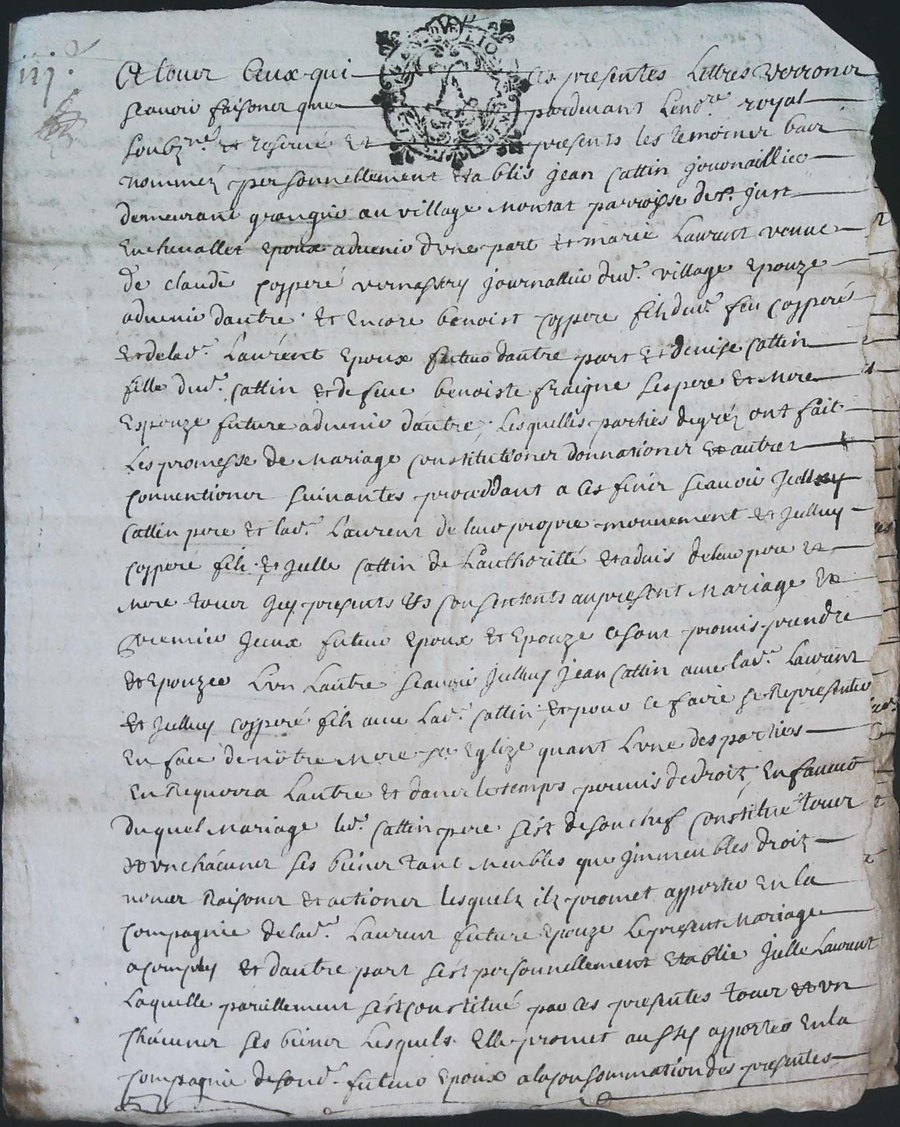 iiij.s
A tous Ceux qui Ces presentes Lettres verrons
scavoir faisons que pardevant Leno.re royal
soubz.né et reservé et presents les temoins bas
nommez personnellement etablis jean Cattin journaillier
demeurant grangié au village Montat parroisse de S.t just
En chevallet Epoux advenir d'une part et marie Laurent veuve
de claude Coppere vernassry journallier dud.t village Epouze
advenir d'autre et Encore benoist Coppere fils dud.t feu Coppere
et delad.e Laurent Epoux futur d'autre part et denise Cattin
fille dud.t Cattin et defue benoiste fraigne ses pere et Mere
Espouze future advenir d'autre, Lesquelles parties degrez ont fait
Les promesse de Mariage Constitutions donnations et autres
Conventions suivantes proceddant a Ces fins scavoir
Cattin pere et lad.e Laurent de leur propre mouvement et Jcelluy
Coppere fils et Jcelle Cattin de L'authoritté et advis deleur pere et
Mere tous Jcy presents et Consentents au present Mariage et
premier Jceux futur Epoux et Epouze ce sont promis prendre
et Epouzer L'un L'autre scavoir Jcelluy jean Cattin avec lad.e Laurent
et Jcelluy Coppere fils avec Lad.e Cattin, et pour ce faire se Representer
En face de nôtre Mere s.te Eglize quant L'une des parties
En Requerra L'autre et dans le temps permis de droit, En faveur
Duquel Mariage led.t Cattin pere s'est de son chef Constitué tous
et un châcuns ses biens tant Meubles que jmmeubles droit
noms Raisons et actions lesquels il promet apporter En la
Compagnie de lad.e Laurent future Epouze Le present Mariage
acomply et d'autre part s'est personnellement Etablie Jcelle Laurent
Laquelle parellement s'est Constitué par Ces presentes tous et un
châcuns ses biens Lesquels Elle promet aussy apporter En la
Compagnie de son d.t futur Epoux a la Consommation des presentes